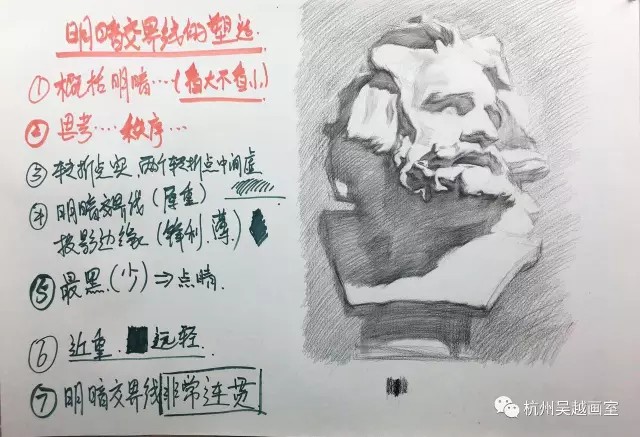 明暗交界线的塑造.
① 概括明暗…(看大不看小)
② 思考…秩序…
③ 转折点实,两个转折点中间虚
④ 明暗交界线(厚重)
投影边缘(锋利.薄.)
⑤ 最黑.(少)⇒点睛.
⑥ 近重. 远轻.
⑦ 明暗交界线非常连贯
杭州吴越画室